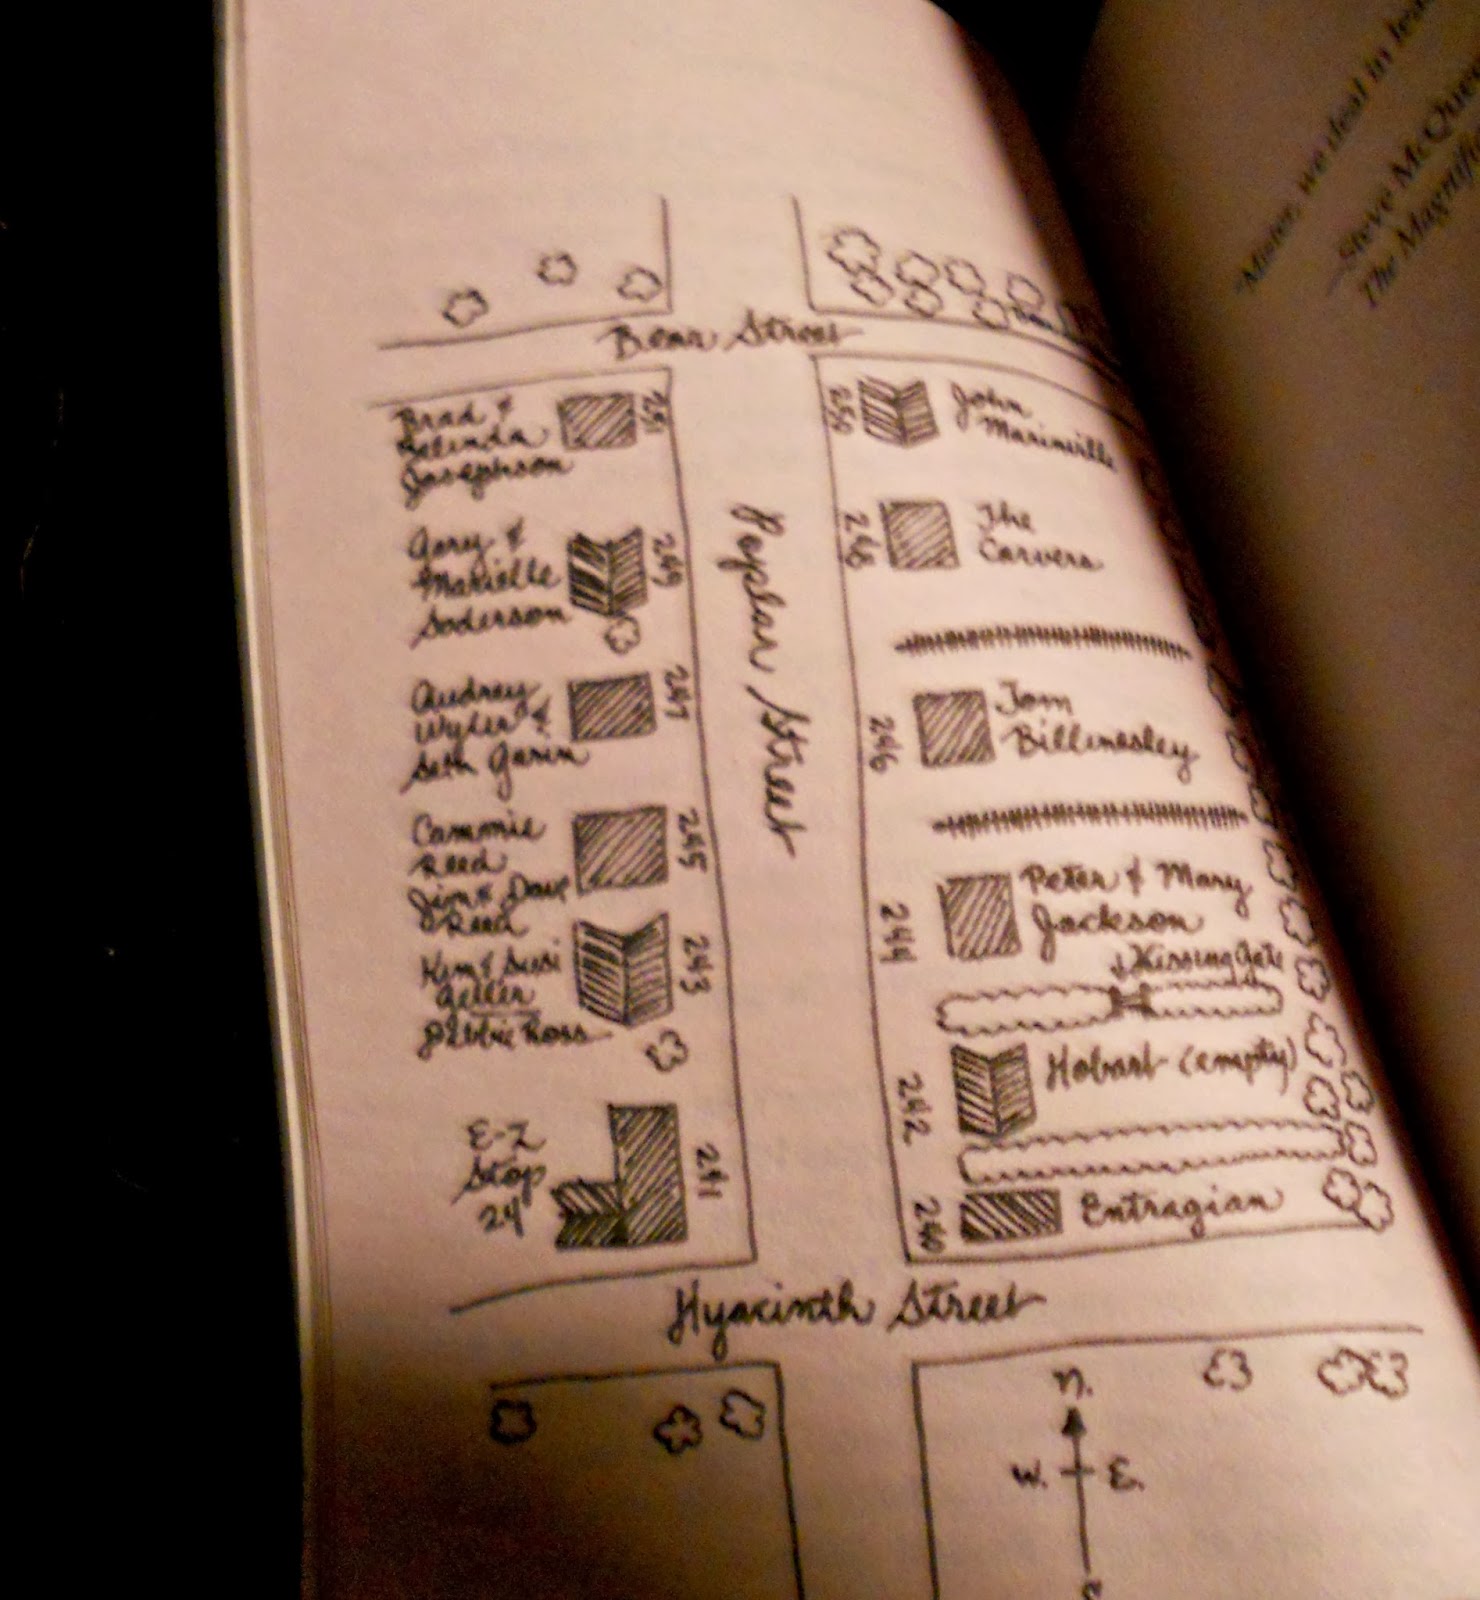 Bear Street
Brad &
Belinda
Josephson
251
Gary &
Marielle
Soderson
249
Audrey
Wyler &
Seth Garin
247
Cammie
Reed
Jim & Dave
Reed
245
Kim & Susi
Geller
Debbie Ross
243
E-Z
Stop
24
241
Poplar Street
250
John
Marinville
248
The
Carvers
246
Tom
Billingsley
244
Peter & Mary
Jackson
↓ Kissing Gate
242
Hobart (empty)
240
Entragian
Hyacinth Street
n.
W. E.
Mister, we deal in
Steve McQueen
The